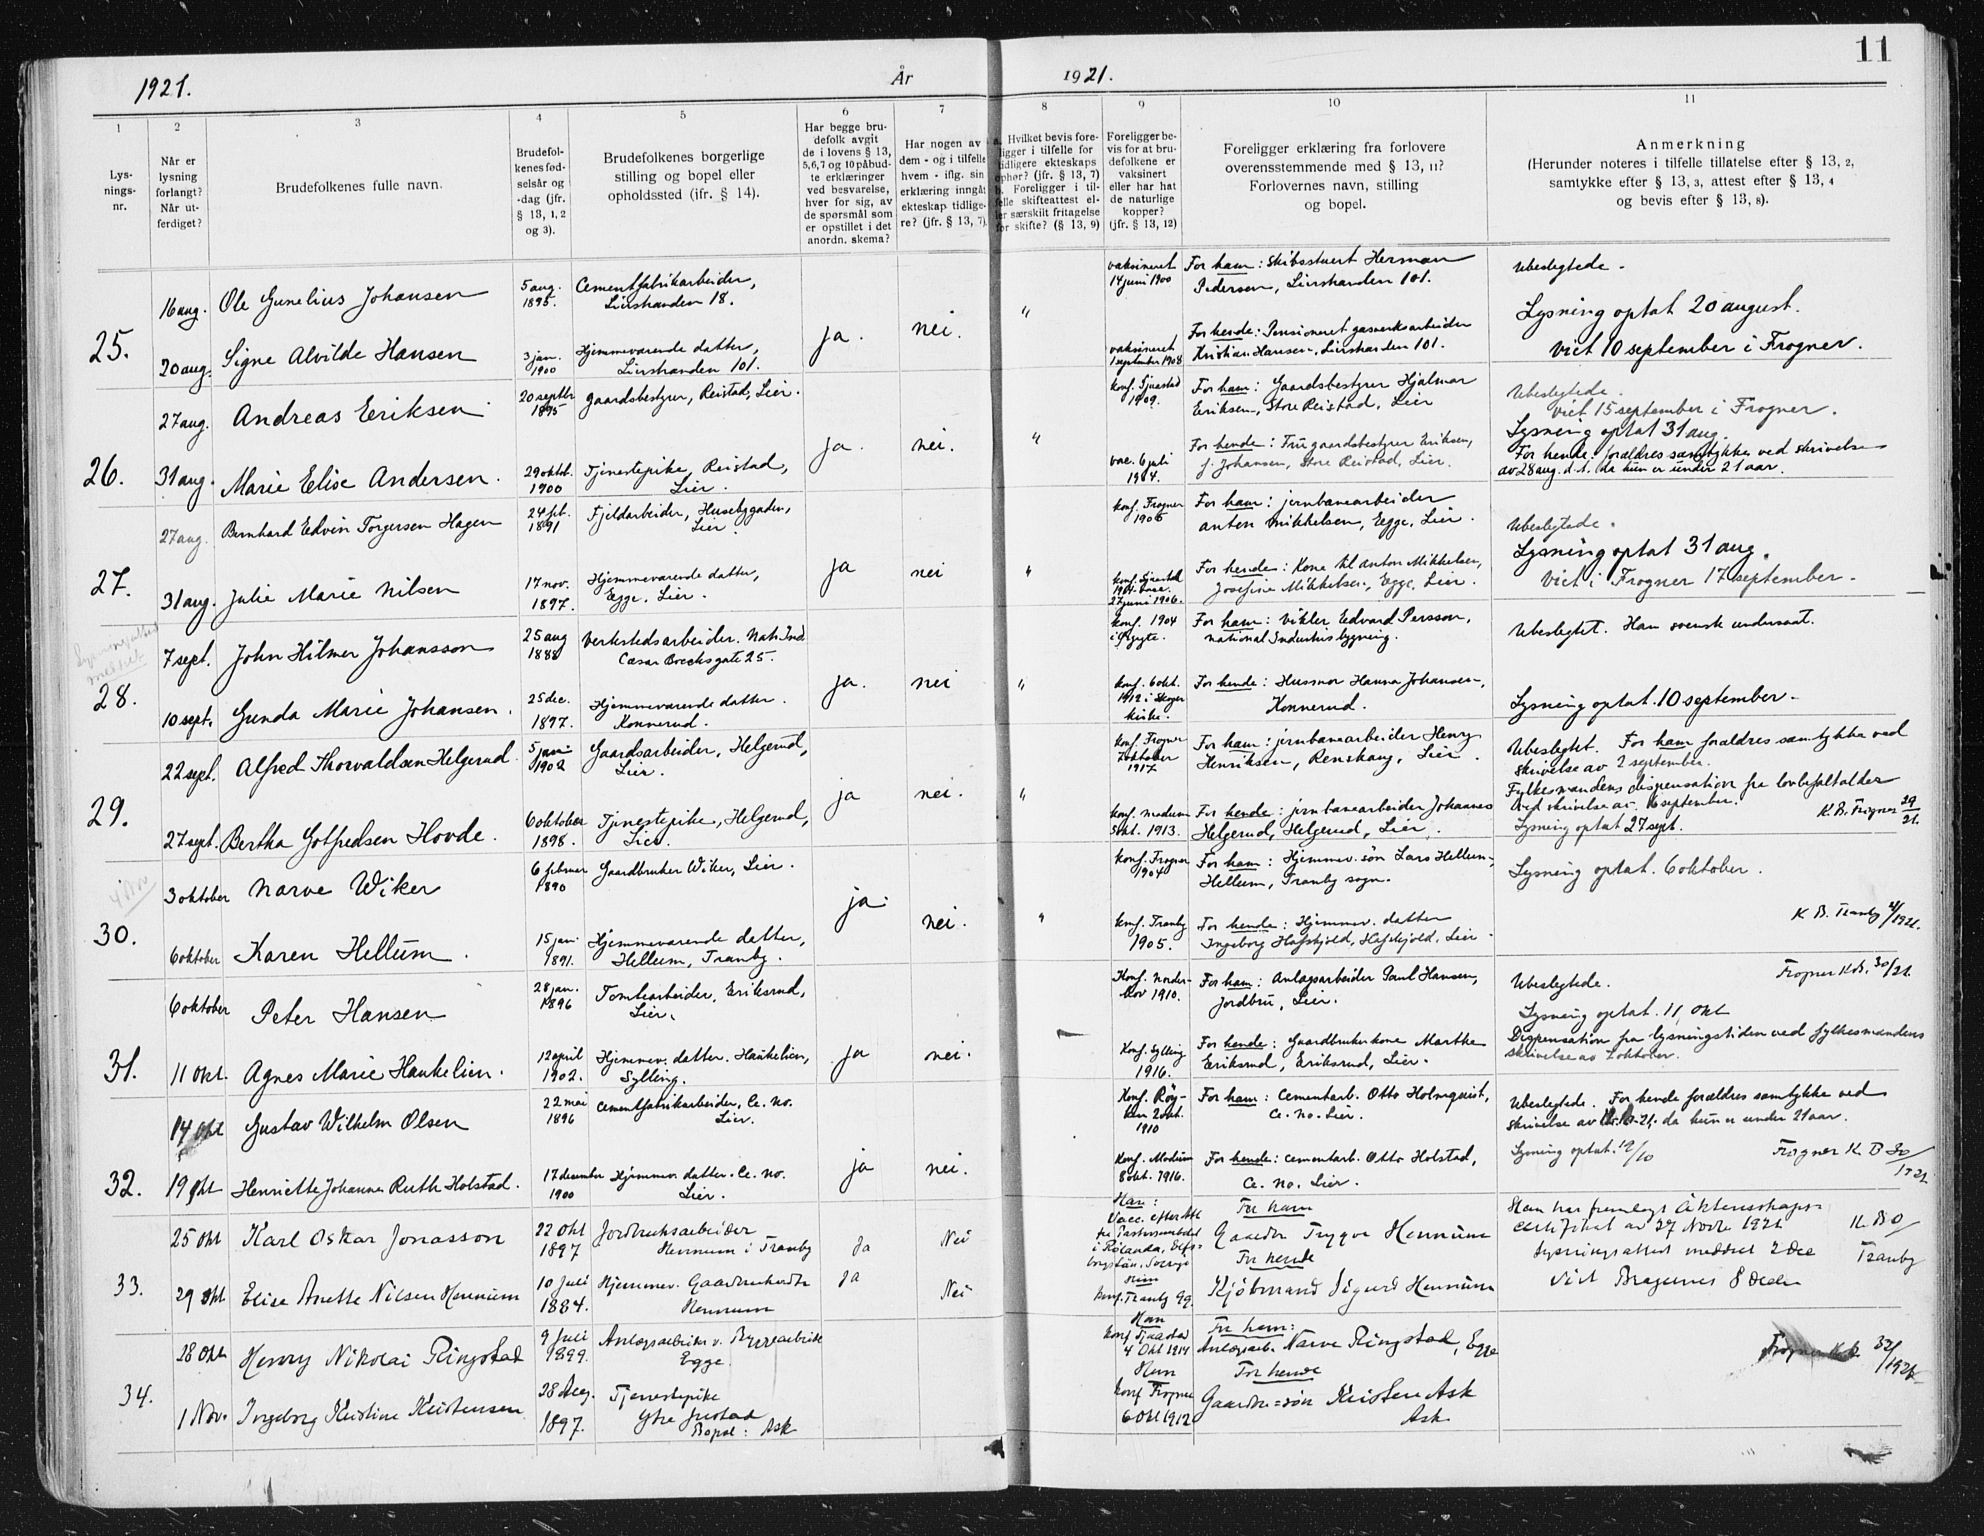 11
1921. År 1921.
1 2 3 4 5 6 7 8 9 10 11
Lys-
nings-
nr.
Når er
lysning
forlangt?
Når ut-
ferdiget?
Brudefolkenes fulle navn.
Brudefol-
kenes fød-
selsår og
-dag (jfr.
§ 13, 1, 2
og 3).
Brudefolkenes borgerlige
stilling og bopel eller
opholdssted (jfr. § 14).
Har begge bru-
defolk avgit
de i lovens § 13,
5,6,7 og 10 påbud-
te erklæringer
ved besvarelse,
hver for sig, av
de spørsmål som
er opstillet i det
anordn. skema?
Har nogen av
dem - og i tilfelle
hvem - iflg. sin
erklæring inngåt
ekteskap tidlige-
re? (jfr. § 13, 7).
a. Hvilket bevis fore-
ligger i tilfelle for
tidligere ekteskaps
ophør? (jfr. § 13, 7)
b. Foreligger i til-
felle skifteattest el-
ler særskilt fritagelse
for skifte? (§ 13, 9)
Foreligger be-
vis for at bru-
defolkene er
vaksinert
eller har hat
de naturlige
kopper?
(jfr. § 13, 12)
Foreligger erklæring fra forlovere
overensstemmende med § 13, 11?
Forlovernes navn, stilling
og bopel.
Anmerkning
(Herunder noteres i tilfelle tillatelse efter § 13, 2,
samtykke efter § 13, 3, attest efter § 13, 4
og bevis efter § 13, 8).
25.
16 aug. Ole Gunelius Johansen
5 aug.
1895.
Cementfabrikarbeider,
Lierstranden 18.
20 aug. Signe Alvilde Hansen
3 jan.
1900
Hjemmeværende datter,
Lierstranden 101.
ja. nei. "
vaksineret
14 juni 1900
vaksineret
1 september 1908
For ham: Skibsstuert Herman
Pedersen, Lierstranden 101.
For hende: Pensioneret gasverksarbeider
Kristian Hansen, Lierstranden 101.
Ubeslegtede.
Lysning optat 20 august.
Viet 10 september i Frogner.
26.
27 aug. Andreas Eriksen
20 septbr
1895
Gaardsbestyrer, Reistad, Lier.
31 aug. Marie Elise Andersen.
29 oktb.
1900
Tjenestepike, Reistad,
Lier.
ja. nei. "
konf. Tjuestad
1909.
vac. 6 juli
1904.
For ham: Gaardsbestyrer Hjalmar
Eriksen, Store Reistad, Lier
For hende: Fru gaardsbestyrer Eriksen,
f. Johansen, Store Reistad, Lier.
Ubeslegtede.
viet 15 september i Frogner.
Lysning optat 31 aug.
For hende: forældres samtykke ved skrivelse
av 28 aug. d. å. da hun er under 21 aar.
27.
27 aug. Bernhard Edvin Torgersen Hagen
1891
Fjeldarbeider, Husebygaden,
Lier.
31 aug. Julie Marie Nilsen
17 nov.
1897.
Hjemmeværende datter,
Egge, Lier.
ja nei "
konf. Frogner
1906
27 juni 1906.
For ham: jernbanearbeider
Anton Mikkelsen, Egge, Lier.
For hende: Kone til Anton Mikkelsen,
Josefine Mikkelsen, Egge, Lier.
Ubeslegtede.
Lysning optat 31 aug.
Viet i Frogner 17 september.
Lysningsattest
meddelt
28.
7 sept. John Hilmer Johansson
25 aug
1888
Verkstedsarbeider. Nat. Ind
Cæsar Boecksgate 25.
10 sept. Gunda Marie Johansen.
25 dec.
1897.
Hjemmeværende datter.
Konnerud.
ja. nei "
konf. 1904
konf. 6 okt.
1912 i Skoger
kirke.
For ham: vikler Edvard Persson,
national Industris bygning.
For hende: Husmor Hanna Johansen,
Konnerud.
Ubeslegtet. Han svensk undersaat.
Lysning optat 10 september.
29.
22 sept. Alfred Thorvaldsen Helgerud
5 jan.
1902
Gaardsarbeider, Helgerud,
Lier.
27 sept. Bertha Gotfredsen Hovde.
6 oktober
1898.
Tjenestepike, Helgerud,
Lier.
ja nei. "
konf. Frogner
7 oktober
1917
konf. Modum
5 okt. 1913.
For ham: jernbanearbeider Henry
Henriksen, Renskaug, Lier.
For hende: jernbanearbeider Johannes
Helgerud, Helgerud, Lier.
Ubeslegtet. For ham forældres samtykke ved
skrivelse av 2 september.
Fylkesmandens dispensation fra lovbefalt alder
ved skrivelse av 16 september.
Lysning optat 27 sept. K. B. Frogner 29/21.
30.
3 oktober Narve Wiker
6 februar
1890
Gaardbruker Wiker, Lier.
6 oktober Karen Hellum.
15 jan.
1891.
Hjemmeværende datter,
Hellum, Tranby.
ja. nei. "
konf. Frogner
1904
konf. Tranby
1905.
For ham: Hjemmev. søn Lars Hellum,
Hellum, Tranby sogn.
For hende: Hjemmev. datter
Ingeborg Høfskjold, Høfskjold, Lier.
Lysning optat. 6 oktober.
K. B. Tranby 4/1921.
31.
6 oktober Peter Hansen
28 jan.
1896
Tomtearbeider, Eriksrud,
Lier.
11 okt. Agnes Marie Haukelien.
12 april
1902.
Hjemmev. datter. Haukelien,
Sylling.
ja nei.
Konf. Norder-
hov 1910.
Konf. Sylling
1916.
For ham: Anlægsarbeider Paul Hansen,
Jordbru, Lier.
For hende: Gaardbrukerkone Marthe
Eriksrud, Eriksrud, Lier.
Frogner K.B. 30/21.
Ubeslegtede.
Lysning optat. 11 okt
Dispensation fra lysningstiden ved fylkesmandens
skrivelse av oktober.
32.
14 okt Gustav Wilhelm Olsen
22 mai
1896
Cementfabrikarbeider, Ce. no.
Lier.
19 okt Henriette Johanne Ruth Holstad.
17 december
1900
Hjemmev. datter. Ce. no.
Lier.
ja nei.
Konf. Røy-
ken 2 okt.
1910
Konf. Modum
8 okt. 1916.
For ham: Cementarb. Otto Holmquist,
Ce. no. Lier.
For hende: cementarb. Otto Holstad,
Ce. no. Lier.
Ubeslegtede. For hende forældres samtykke ved
skrivelse av 10-21, da hun er under 21 aar.
Lysning optat 19/10 Frogner K. B 30/1921
33.
25 okt Karl Oskar Jonasson
22 okt
1897
Jordbruksarbeider
Hennum i Tranby
29 okt Elise Anette Nilsen Hennum
10 Juli
1884.
Hjemmev. Gaardbrukerdtr
Hennum
Ja Nei
Ja Nei
Han:
Vacc. efter Att
Hun
konf. Tranby 99.
For ham
Gaardbr Trygve Hennum
For hende
Kjøbmand Sigurd Hennum
Han har fremlagt Äktenskaps-
certifikat av 27 Novbr 1921 K. B 0/
Lysningsattest meddelt 2 Dec Tranby
Viet Bragernes 8 Decbr
34.
28 okt Henry Nikolai Ringstad
9 Juli
1899.
Anlægsarbeider v. Byggearbeide
Egge
1 Nov. Ingeborg Kristine Kristensen
28 Aug.
1897.
Tjenestepike
Ytre Justad
Bopæl: Ask
Han
konf Tjuestad
4 Okt 1914
Hun
konf Frogner
6 Okt 1912
For ham:
Anlægsarb. Narve Ringstad, Egge
For hende
Gaardbr=søn Kristen Ask
Ask
Frogner K. B. 32/1921